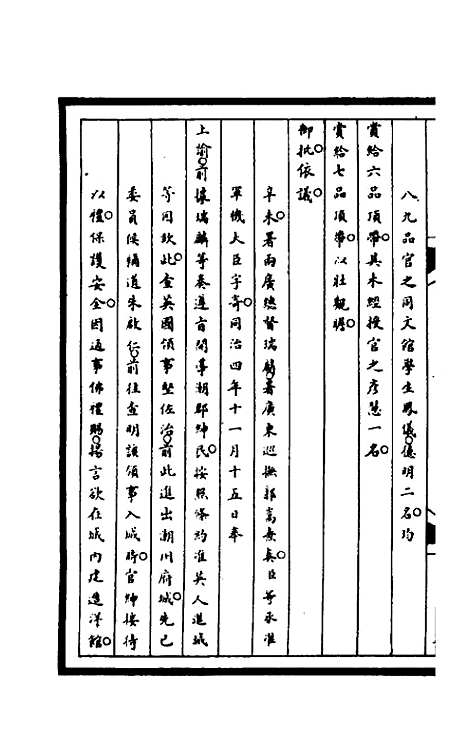 八九品官之同文館學生鳳儀○德明二名○均
賞給六品頂帶○其未經授官之彥慧一名○
賞給七品頂帶○以壯觀瞻○
御批依議○
辛未○署兩廣總督瑞麟○署廣東巡撫郭嵩燾奏○臣等承准
軍機大臣字寄○同治四年十一月十五日奉
上諭○前據瑞麟等奏遵旨開導潮郡紳民○按照條約准英人進城
等因欽此○查英國領事堅佐治○前此進出潮州府城○先已
委員候補道朱啟仁○前往查明該領事入城時○官紳接待
以禮○保護安全○因通事佛禮賜○揚言欲在城內建造洋館○